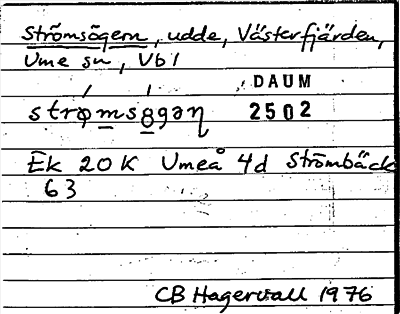 Strömsögern, udde, Västerfjärden,
Ume sn, Vbl
DAUM
strø̱ms8gəη 2502
Ek 20 K Umeå 4d Strömbäck
63
CB Hagervall 1976